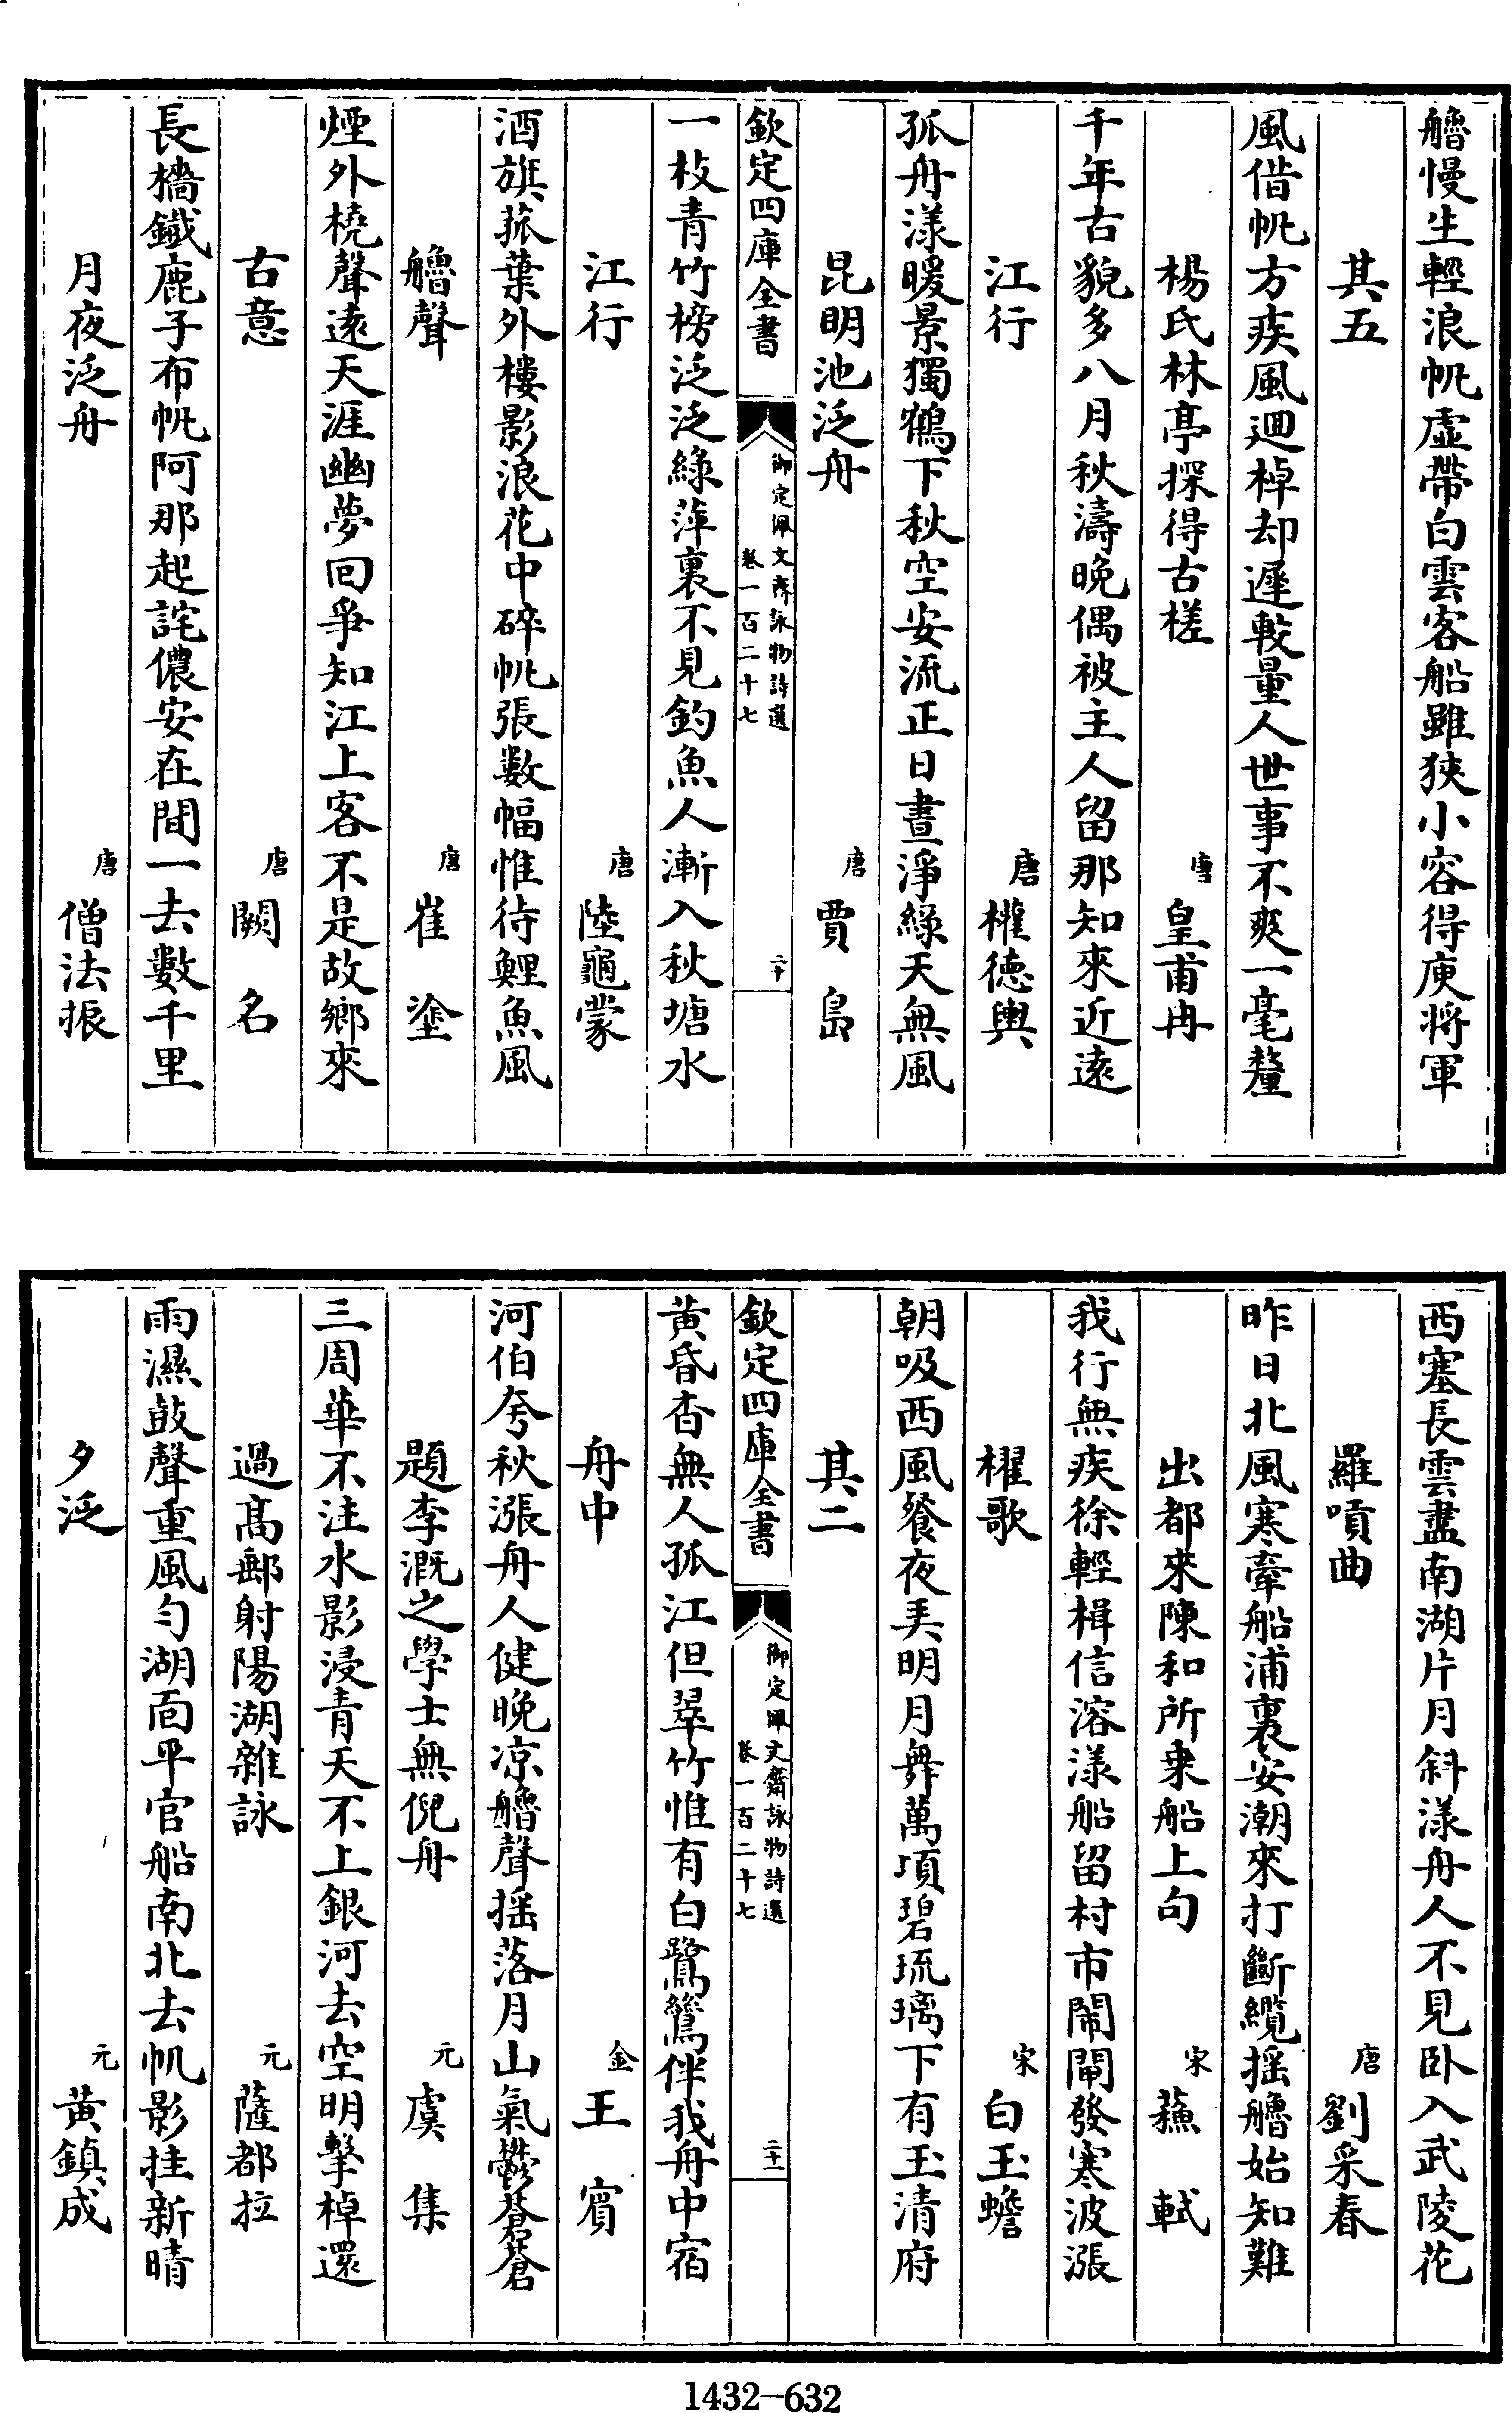 艪慢生輕浪帆虛帶白雲客船雖狹小容得庾將軍
其五
風借帆方疾風迴棹却遲較量人世事不爽一毫釐
楊氏林亭探得古槎 唐 皇甫冉
千年古貌多八月秋濤晚偶被主人留那知來近遠
江行 唐 權德輿
孤舟漾暖景獨鶴下秋空安流正日晝淨綠天無風
昆明池泛舟 唐 賈島
欽定四庫全書 御定佩文齋詠物詩選 卷一百二十七 二十
一枝青竹榜泛泛綠萍裏不見釣魚人漸入秋塘水
江行 唐 陸龜蒙
酒旗菰葉外樓影浪花中碎帆張數幅惟待鯉魚風
艪聲 唐 崔塗
煙外橈聲遠天涯幽夢回爭知江上客不是故鄉來
古意 唐 闕名
長檣鐵鹿子布帆阿那起詫儂安在間一去數千里
月夜泛舟 唐 僧法振
西塞長雲盡南湖片月斜漾舟人不見臥入武陵花
羅嗊曲 唐 劉采春
昨日北風寒牽船浦裏安潮來打斷纜搖艪始知難
出都來陳和所乘船上句 宋 蘇軾
我行無疾徐輕楫信溶漾船留村市鬧閘發寒波漲
櫂歌 宋 白玉蟾
朝吸西風餐夜弄明月舞萬頃碧琉璃下有玉清府
其二
欽定四庫全書 御定佩文齋詠物詩選 卷一百二十七 二十一
黃昏杳無人孤江但翠竹惟有白鷺鷥伴我舟中宿
舟中 金 王賓
河伯夸秋漲舟人健晚凉艪聲搖落月山氣鬱蒼蒼
題李溉之學士無倪舟 元 虞集
三周華不注水影浸青天不上銀河去空明擊棹還
過高郵射陽湖雜詠 元 薩都拉
雨濕鼓聲重風勻湖面平官船南北去帆影挂新晴
夕泛 元 黃鎮成
1432-632